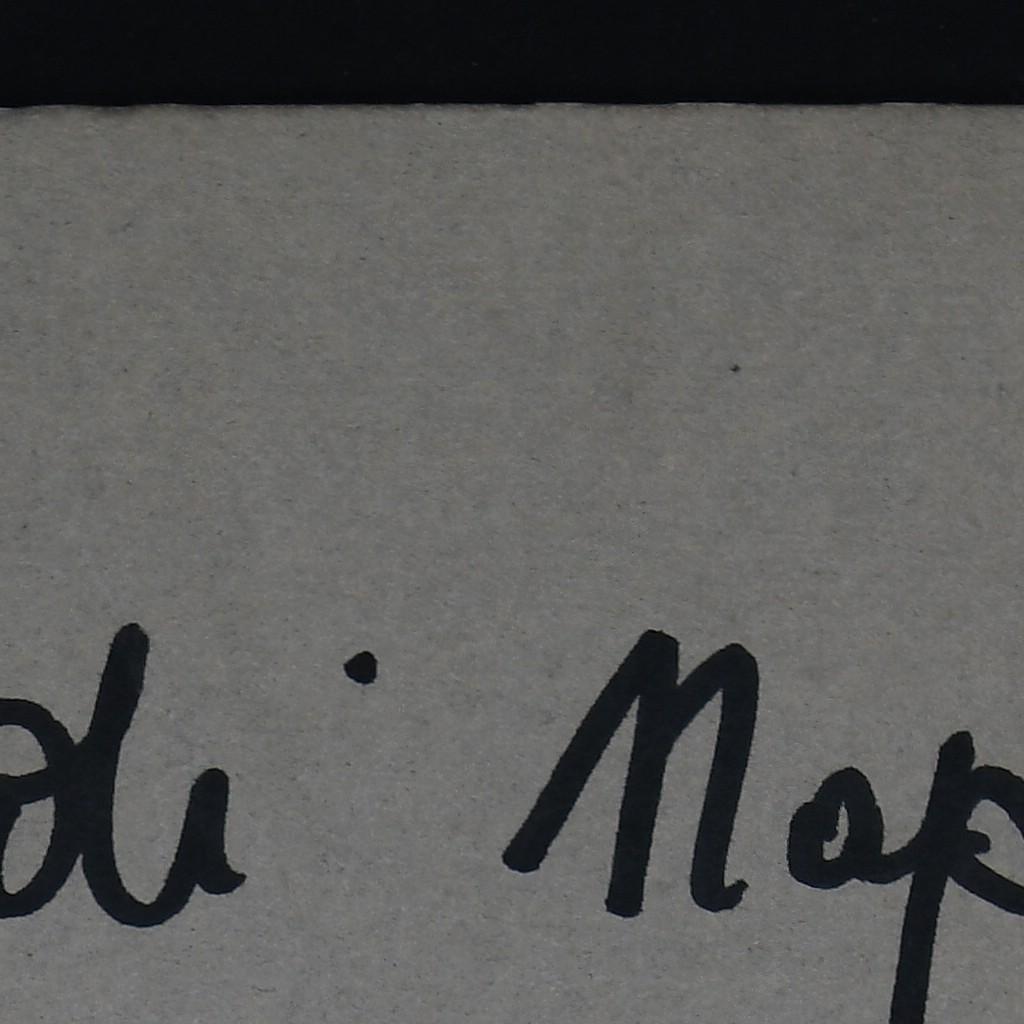 di Nap